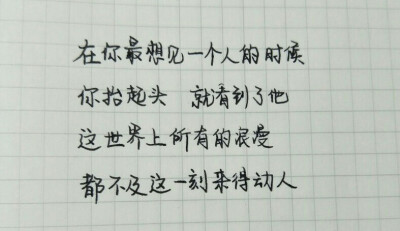 在你最想见一个人的时候
你抬起头 就看到了他
这世界上所有的浪漫
都不及这一刻来得动人